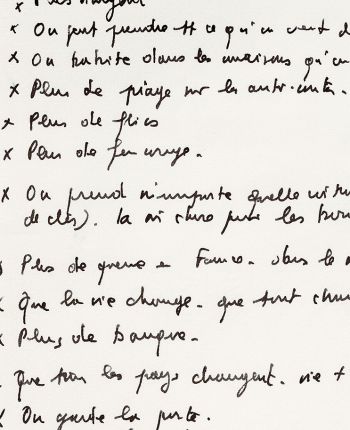 x Plus d'argent
x On peut prendre tt ce qu'on veut d
x On habite dans les maisons qu'on
x Plus de péage sur les auto-routes.
x Plus de flics
x Plus de feu rouge.
x On prend n'importe quelle voitu
de clés). la mi chose pour les
x Plus de guerre en France. dans le m
x Que la vie change. que tout chan
x Plus de banque.
Que tous les pays changent. vie +
x On garde la porte.